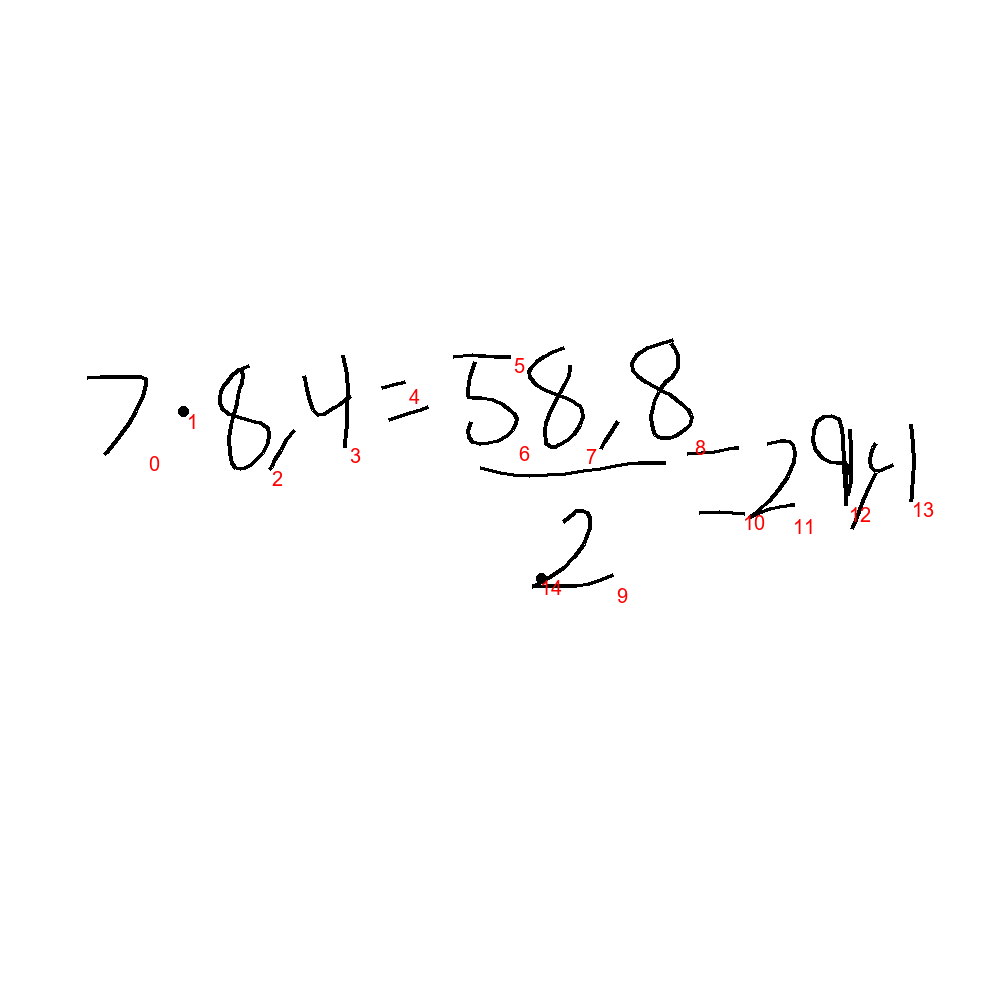 7 · 8,4 = 58,8 = 29,4
2
0 1 2 3 4 5 6 7 8 9 10 11 12 13 14